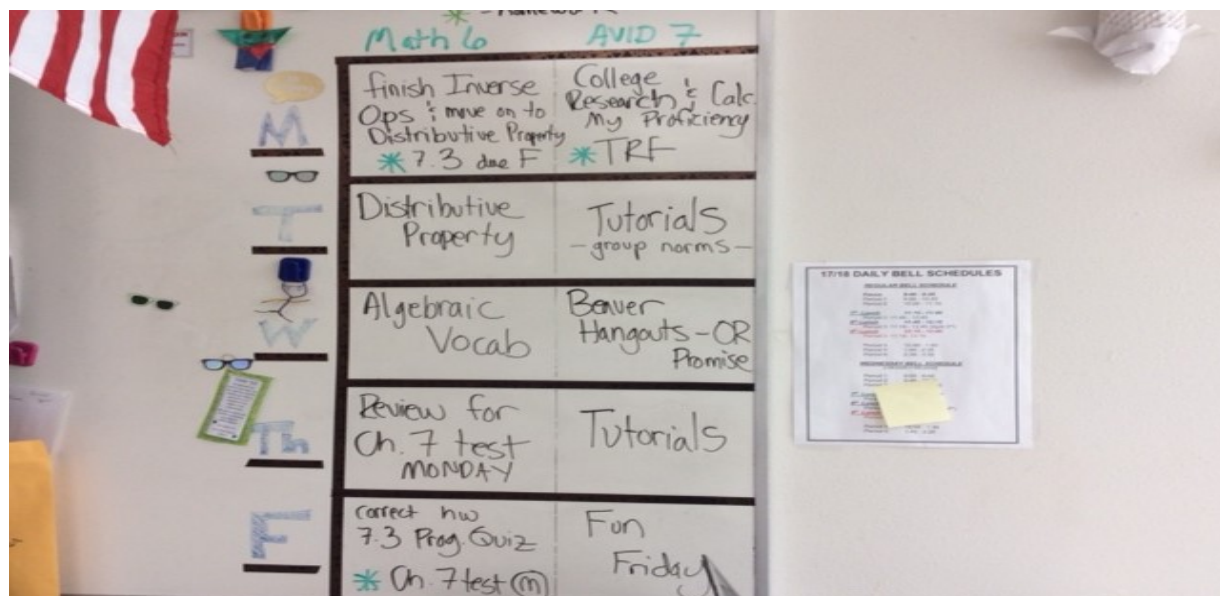 * - Homework
Math 6 AVID 7
M
finish Inverse
Ops & move on to
Distributive Property
* 7.3 due F
College
Research & Calc.
My Proficiency
* TRF
T
Distributive
Property
Tutorials
- group norms -
W
Algebraic
Vocab
Beaver
Hangouts - OR
Promise
Th
Review for
Ch. 7 test
MONDAY
Tutorials
F
correct hw
7.3 Prog. Quiz
* Ch. 7 test (m)
Fun
Friday
17/18 DAILY BELL SCHEDULES
REGULAR BELL SCHEDULE
WEDNESDAY BELL SCHEDULE